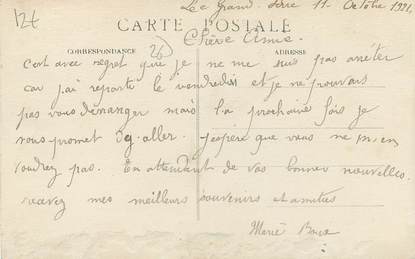 12€
Le Grand-Serre 11 Octobre 1921.
CARTE POSTALE
CORRESPONDANCE
ADRESSE
(26)
Chère Amie.
C'est avec regret que je ne me suis pas arréter
car j'ai reparti le vendredi et je ne pouvais
pas vous déranger mais la prochaine fois je
vous promet d'y aller. J'espère que vous ne m'en
voudrez pas. En attendant de vos bonnes nouvelles.
recevez mes meilleurs souvenirs et amitiés
Marie